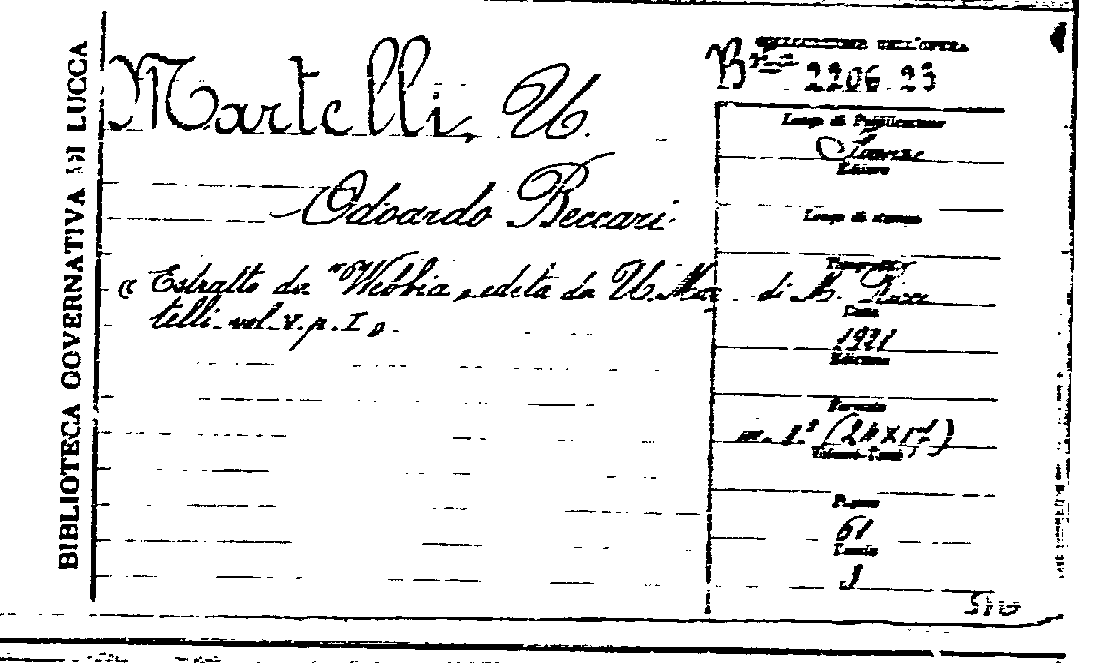 BIBLIOTECA GOVERNATIVA DI LUCCA
COLLOCAZIONE DELL'OPERA
Martelli, U.
2206 23
Odoardo Beccari
Luogo di Pubblicazione
Firenze
Editore
Luogo di stampa
« Estratto da "Webbia, edita da U. Mar
telli vol. V. p. I
Tipografia
di M. Ricci
Data
1921
Edizione
Formato
(24X17)
Volumi-Tomi
Pagine
61
Tavole
1